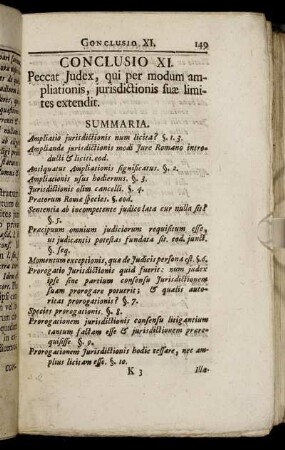 CONCLUSIO XI. 149
CONCLUSIO XI.
Peccat Judex, qui per modum am-
pliationis, jurisdictionis suæ limi-
tes extendit.
SUMMARIA.
Ampliatio jurisdictionis num licita? §. 1. 3.
Ampliandæ jurisdictionis modi Jure Romano intro-
ducti & liciti. eod.
Antiquatus Ampliationis significatus. §. 2.
Ampliationis usus hodiernus. §. 3.
Jurisdictionis olim cancelli. §. 4.
Prætorum Romæ species. §. eod.
Sententia ab incompetente judice lata cur nulla sit?
§. 5.
Præcipuum omnium judiciorum requisitum esse,
ut judicantis potestas fundata sit. eod. junct.
§. seq.
Momentum exceptionis, quæ de Judicis persona est. §. 6.
Prorogatio Jurisdictionis quid fuerit: num judex
ipse sine partium consensu Jurisdictionem
suam prorogare potuerit: & qualis auto-
ritas prorogationis? §. 7.
Species prorogationis. §. 8.
Prorogationem jurisdictionis consensu litigantium
tantum factam esse & jurisdictionem prære-
quisisse. §. 9.
Prorogationem Jurisdictionis hodie cessare, nec am-
plius licitam esse. §. 10.
K 3 Illa-